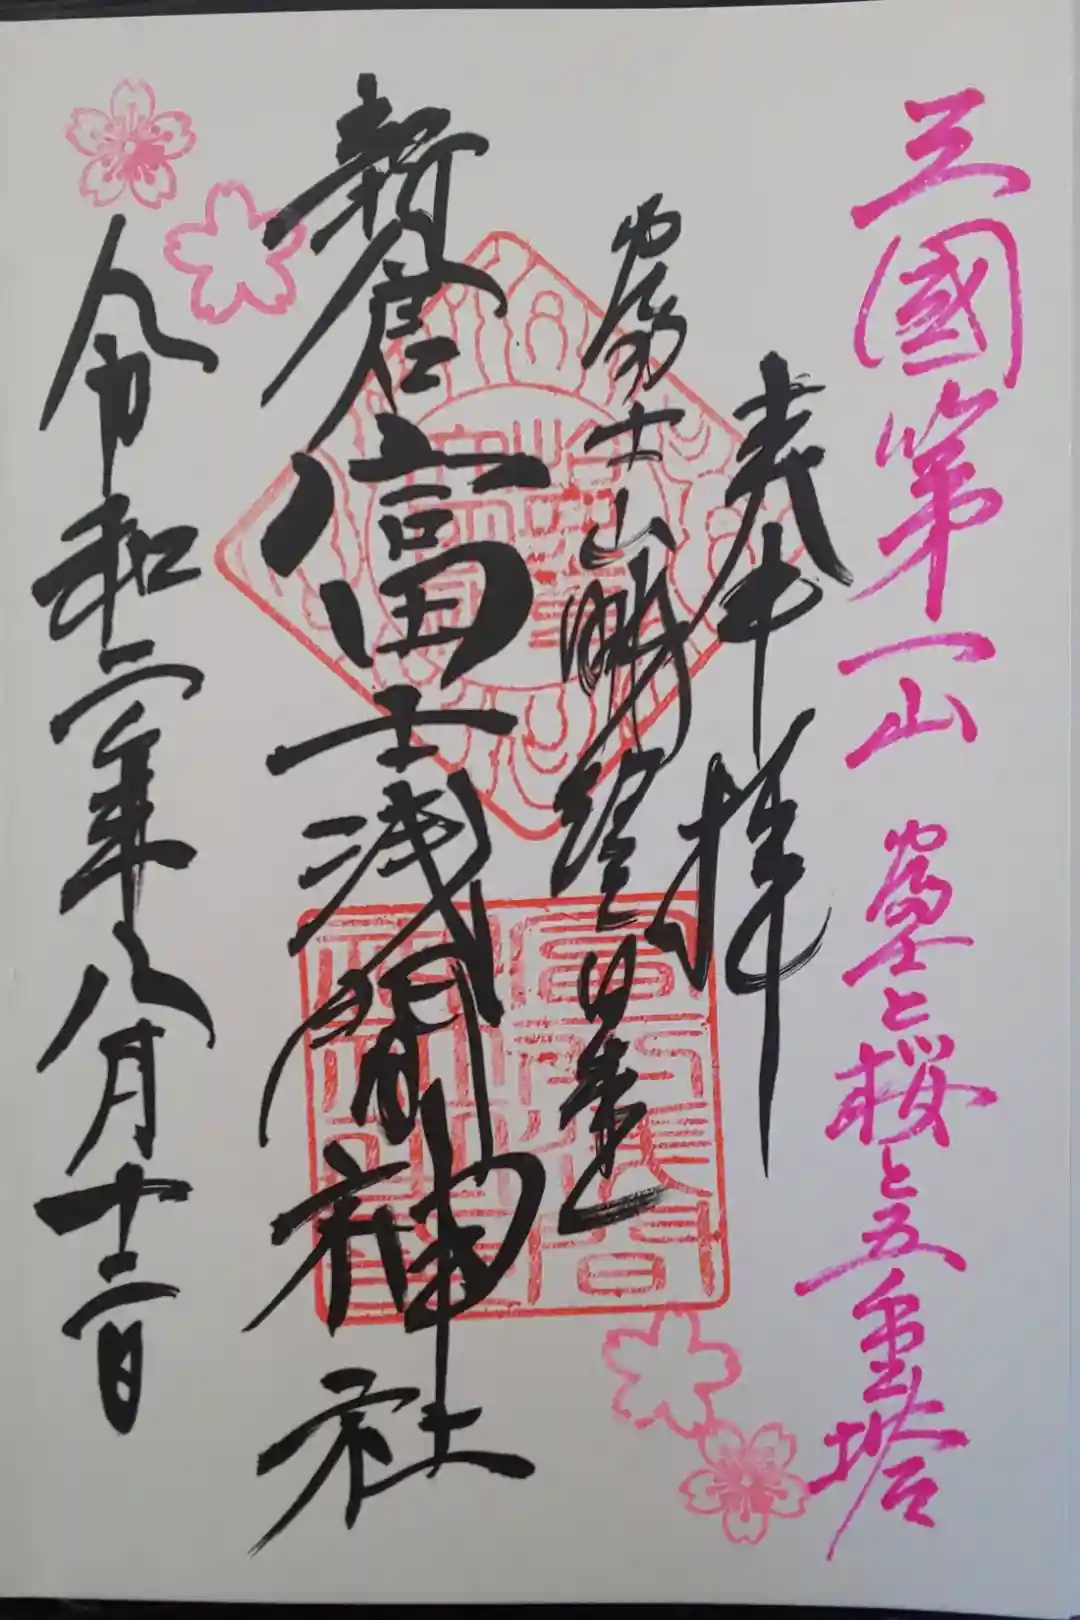 三國第一山 富士と桜と五重塔
奉拝
富士山眺絶景
新倉富士浅間神社
令和二年八月十二日